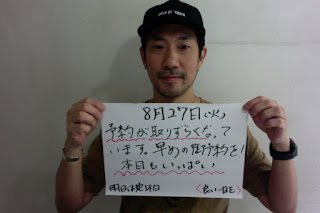 8月27日(火)
予約が取りずらくなって
います。早めの御予約を!
本日もいっぱい
明日は定休日